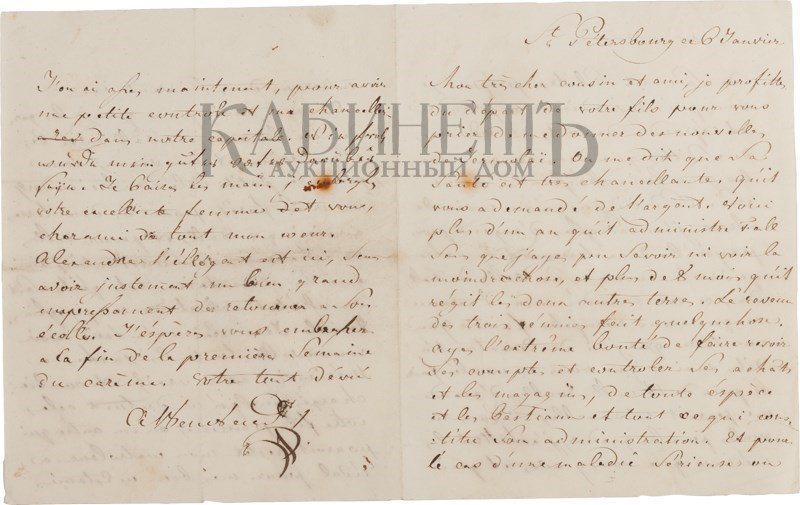 St Petersbourg ce 6 Janvier.
Mon très cher cousin et ami, je profite
du départ de votre fils pour vous
prier de me donner des nouvelles
de Jermolaï. On me dit que Sa
Santé est très chancellante, qu'il
vous a demandé de l'argent. Voici
plus d'un an qu'il administre
Sans que j'aye pu Savoir ni voir la
moindre et plus de 8 mois qu'il
régit les deux autres terres. Le revenu
des trois réunies fait quelquechose.
ayez l'extrême bonté de faire revoir
Ses comptes et controler Ses achats
et les magazins, de toute éspèce
et les bestiaux et tout ce qui cons-
titue Son administration. Et pour
le cas d'une maladie Sérieuse ou
J'en ai assez maintenant, pour avoir
une petite controle et une chancelle-
dans notre capitale.
Je baise les mains, j'
votre excellente femme et vous,
cher ami de tout mon coeur.
Alexandre l'élégant est ici, Sans
avoir justement un bien grand
empressement de retourner a Son
école. J'éspère vous embrasser
a la fin de la première Semaine
du carème. Votre tout dévoué
КАБИНЕТЪ
АУКЦИОННЫЙ ДОМ